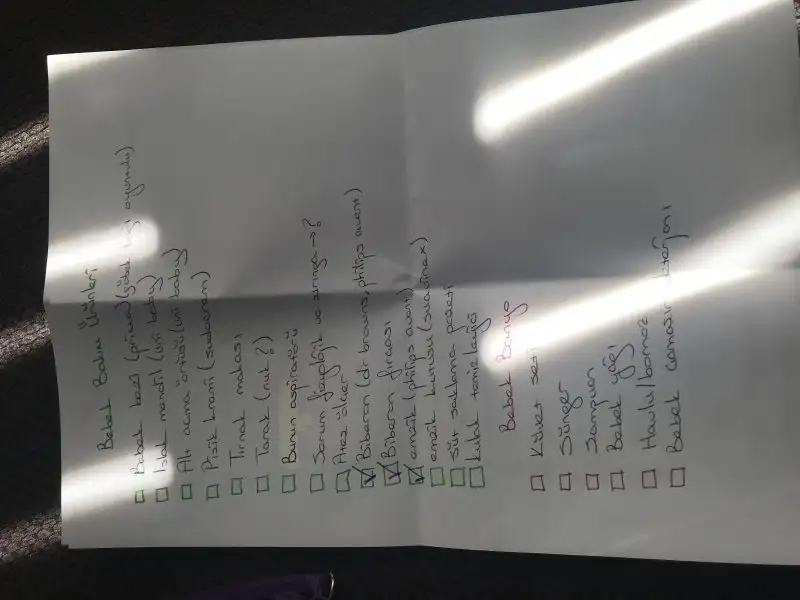 Bebek Bakım Ürünleri
Bebek bezi (prima) (göbek bağı oyuntulu)
Islak mendil (uni baby)
Alt açma örtüsü (uni baby)
Pişik kremi (sudocrem)
Tırnak makası
Tarak (nuk?)
Burun aspiratörü
Serum fizyolojik ve şırınga →?
Ateş ölçer
Biberon (dr browns, philips avent)
Biberon fırçası
emzik (philips avent)
emzik kutusu (suavinex)
süt saklama poşeti
kulak temizleyici
Bebek Banyo
Küvet seti
Sünger
Şampuan
Bebek yağı
Havlu/bornoz
Bebek çamaşır deterjanı